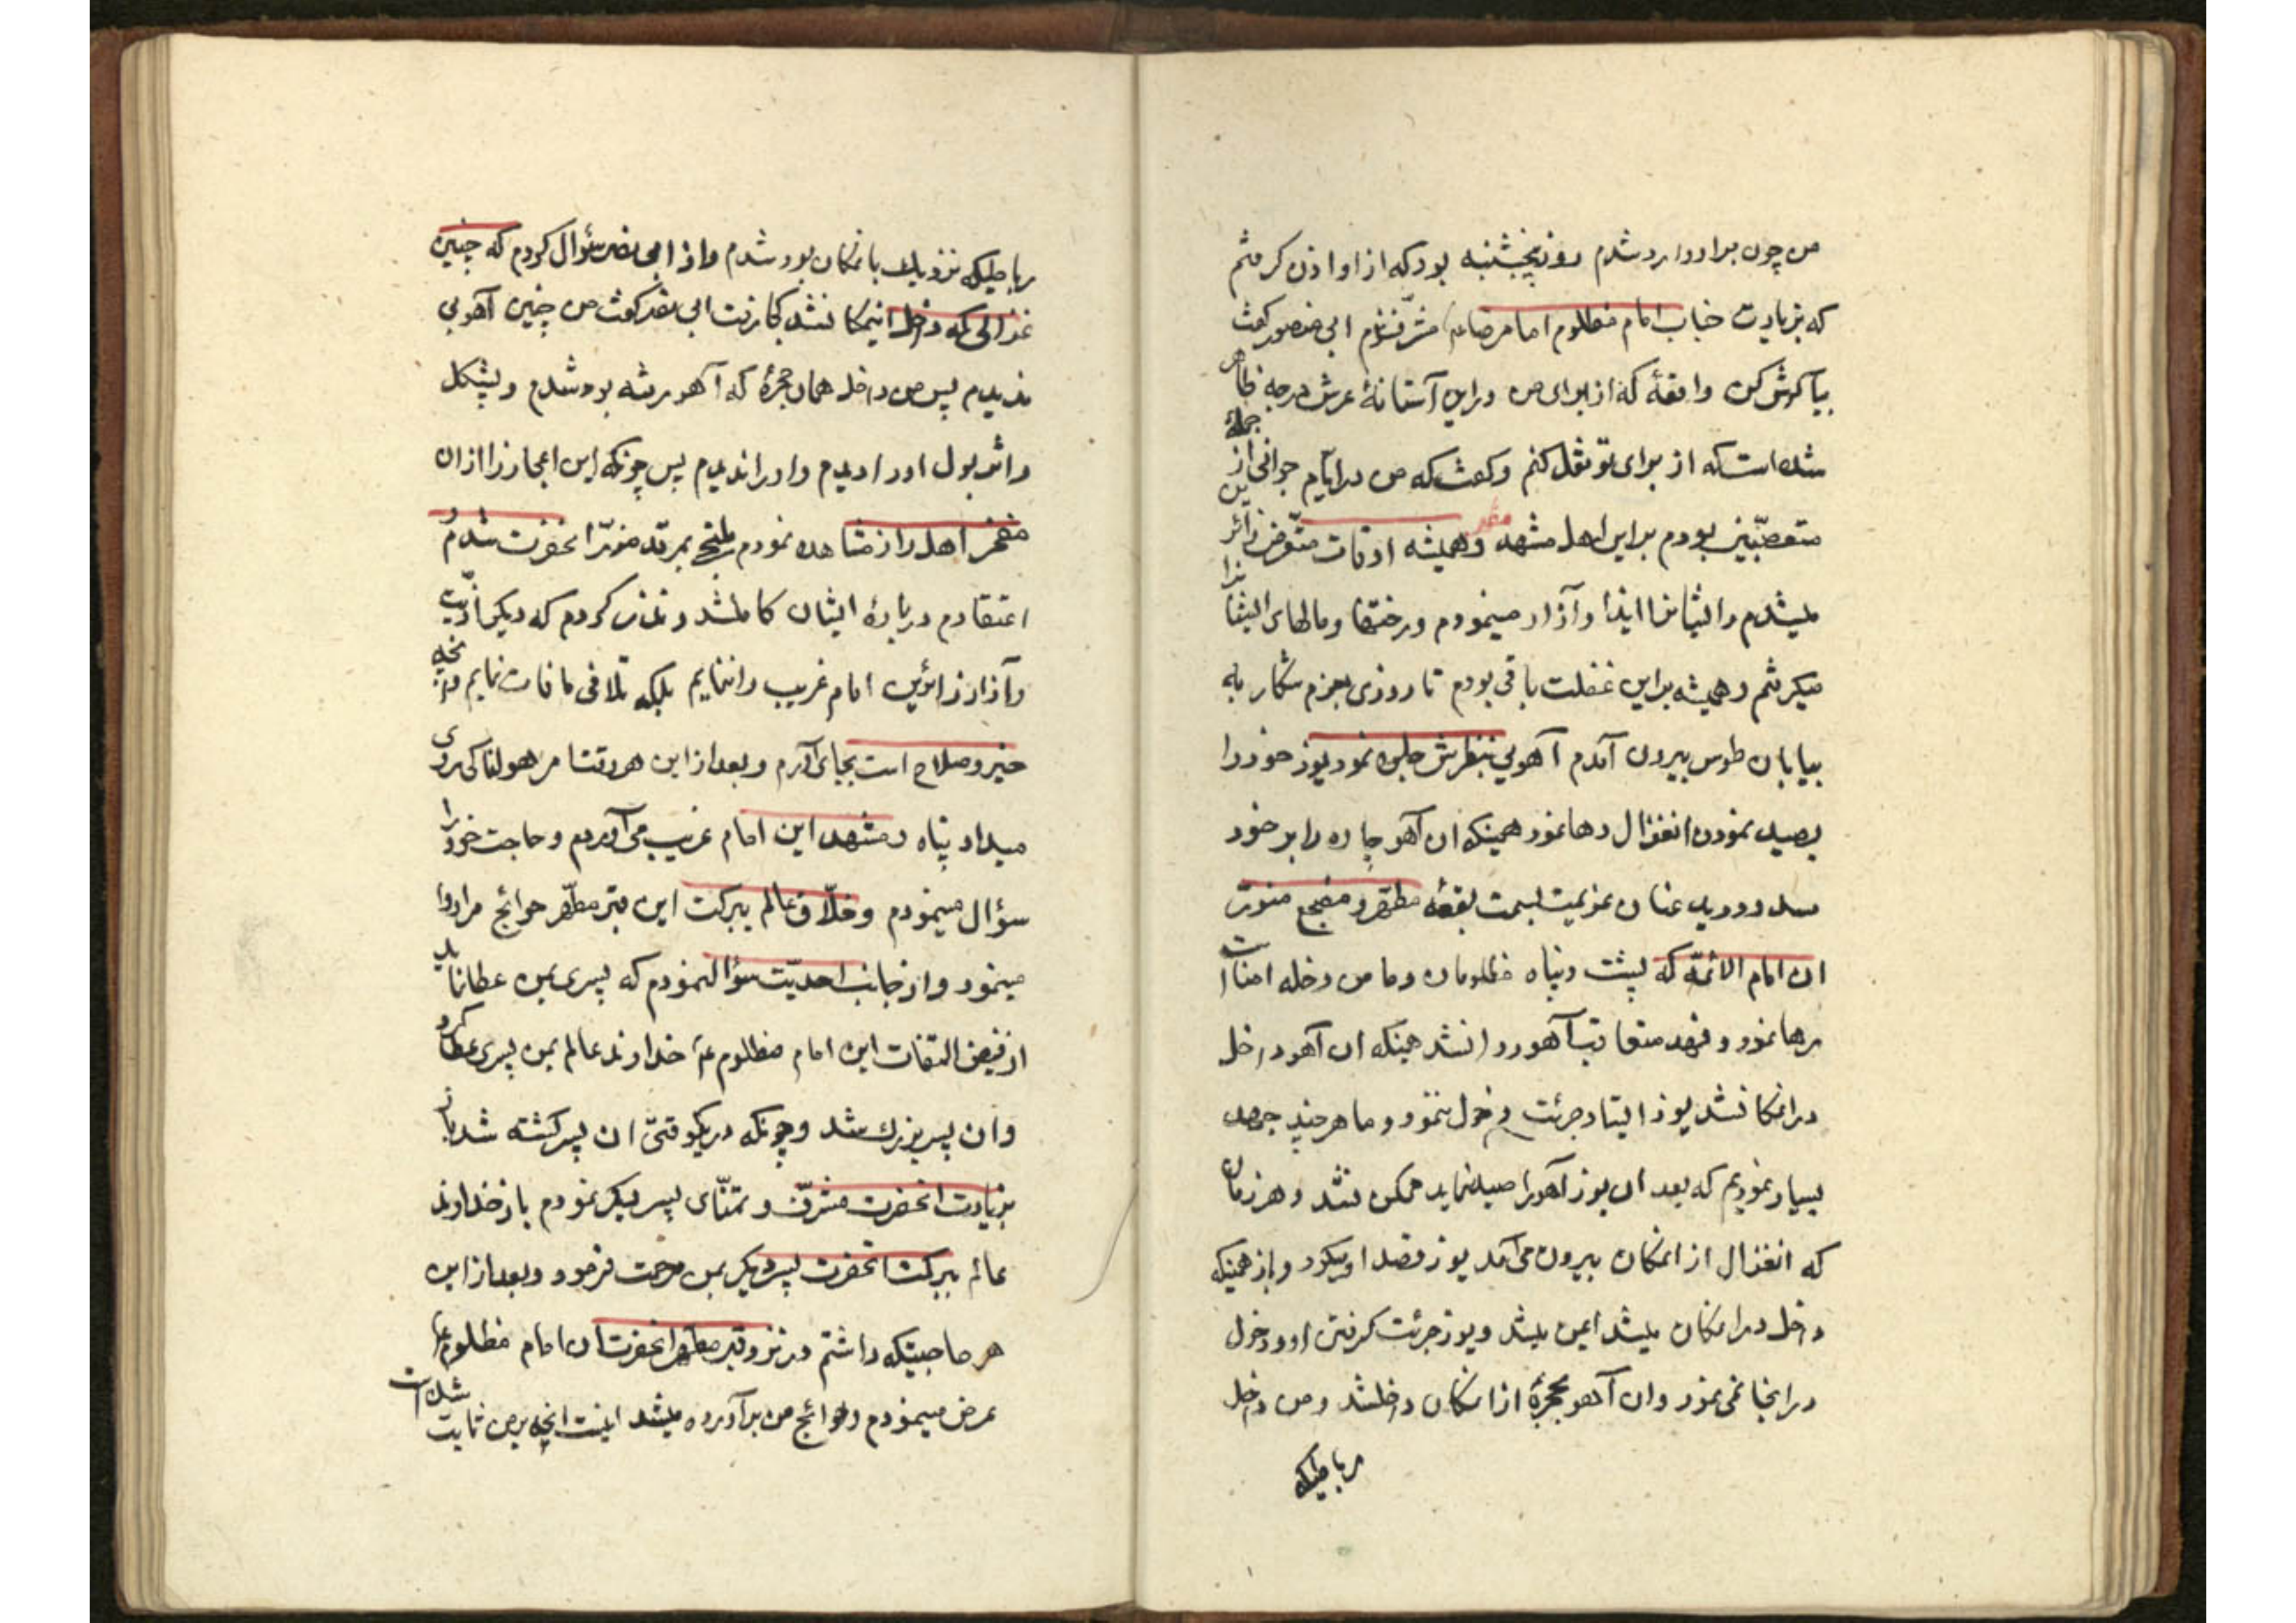 من چون براو وارد شدم روز پنجشنبه بود که از او اذن گرفتم
که بزیارت جناب امام مظلوم امام رضا مشرّف شوم ابی منصور گفت
بیا گوش کن واقعهٔ که از برای من در این آستانهٔ عرش درجه ظاهر
شده است که از برای تو نقل کنم و گفت که من در ایّام جوانی از جملهٔ
متعصّبین بودم بر این اهل مشهد مقدس و همیشه اوقات متعرّض زائرین
میشدم و ایشانرا ایذا و آزار مینمودم و رختها و مالهای ایشانرا
میگرفتم و همیشه بر این غفلت باقی بودم تا روزی بعزم شکار به
بیابان طوس بیرون آمدم آهویی بنظرش جلوه نمود یوز خود را
بصید نمودن انغزال رها نمود همینکه ان آهو چاره را بر خود
مسدود دید عنان عزیمت بسمت بقعهٔ مطهّر و مضجع منوّر
ان امام الائمّه که پشت و پناه مظلومان و ما من دخله امنا است
رها نمود و فهد متعاقب آهو روانشد همینکه ان آهو داخل
در انمکانشد یوز ایستاد جرئت دخول ننمود و ما هر چند جهد
بسیار نمودیم که بعد ان یوز آهورا صید نماید ممکن نشد و هر زمان
که انغزال از انمکان بیرون می‌آمد یوز قصد او میکرد و باز همینکه
داخل در انمکان میشد ایمن میشد و یوز جرئت گرفتن او و دخول
در اینجا نمی‌نمود وان آهو بحجرهٔ از انمکان داخلشد و من داخل
رباطیکه
رباطیکه نزدیک بانمکان بود شدم و از ابی نصر سؤال کردم که چنین
غزالی که داخل اینمکانشد کجا رفت ابی نصر گفت من چنین آهویی
ندیدم پس من داخل همان حجرهٔ که آهو رفته بود شدم و پشکل
و اثر بول او را دیدم و او را ندیدم پس چونکه این اعجاز را از ان
مفخر اهل راز مشاهده نمودم ملتجی بمرقد منوّر انحضرت شدم و
اعتقادم دربارهٔ ایشان کاملشد و نذر کردم که دیگر اذّیت
و آزار زائرین امام غریب را ننمایم بلکه تلافی مافات نمایم و آنچه
خیر و صلاح است بجای آورم و بعد از این هر وقتا مر هولناکی روی
میداد پناه بمشهد این امام غریب می‌آوردم و حاجت خود را
سؤال مینمودم و خلّاق عالم ببرکت این قبر مطهّر حوائج مرا روا
مینمود و از جانب احدیّت سؤالنمودم که پسری بمن عطا نماید
از فیض التفات این امام مظلوم خداوند عالم بمن پسری عطا کرد
وان پسر بزرگ شد و چونکه در یکوقتی ان پسر کشته شد باز
بزیارت انحضرت مشرّف و تمنّای پسر دیگر نمودم باز خداوند
عالم ببرکت انحضرت پسر دیگر بمن مرحمت فرمود و بعد از این
هر حاجتیکه داشتم در نزد قبر مطهر انحضرت ان امام مظلوم
عرض مینمودم و حوائج من برآورده میشد اینست انچه بر من ثابت شده است